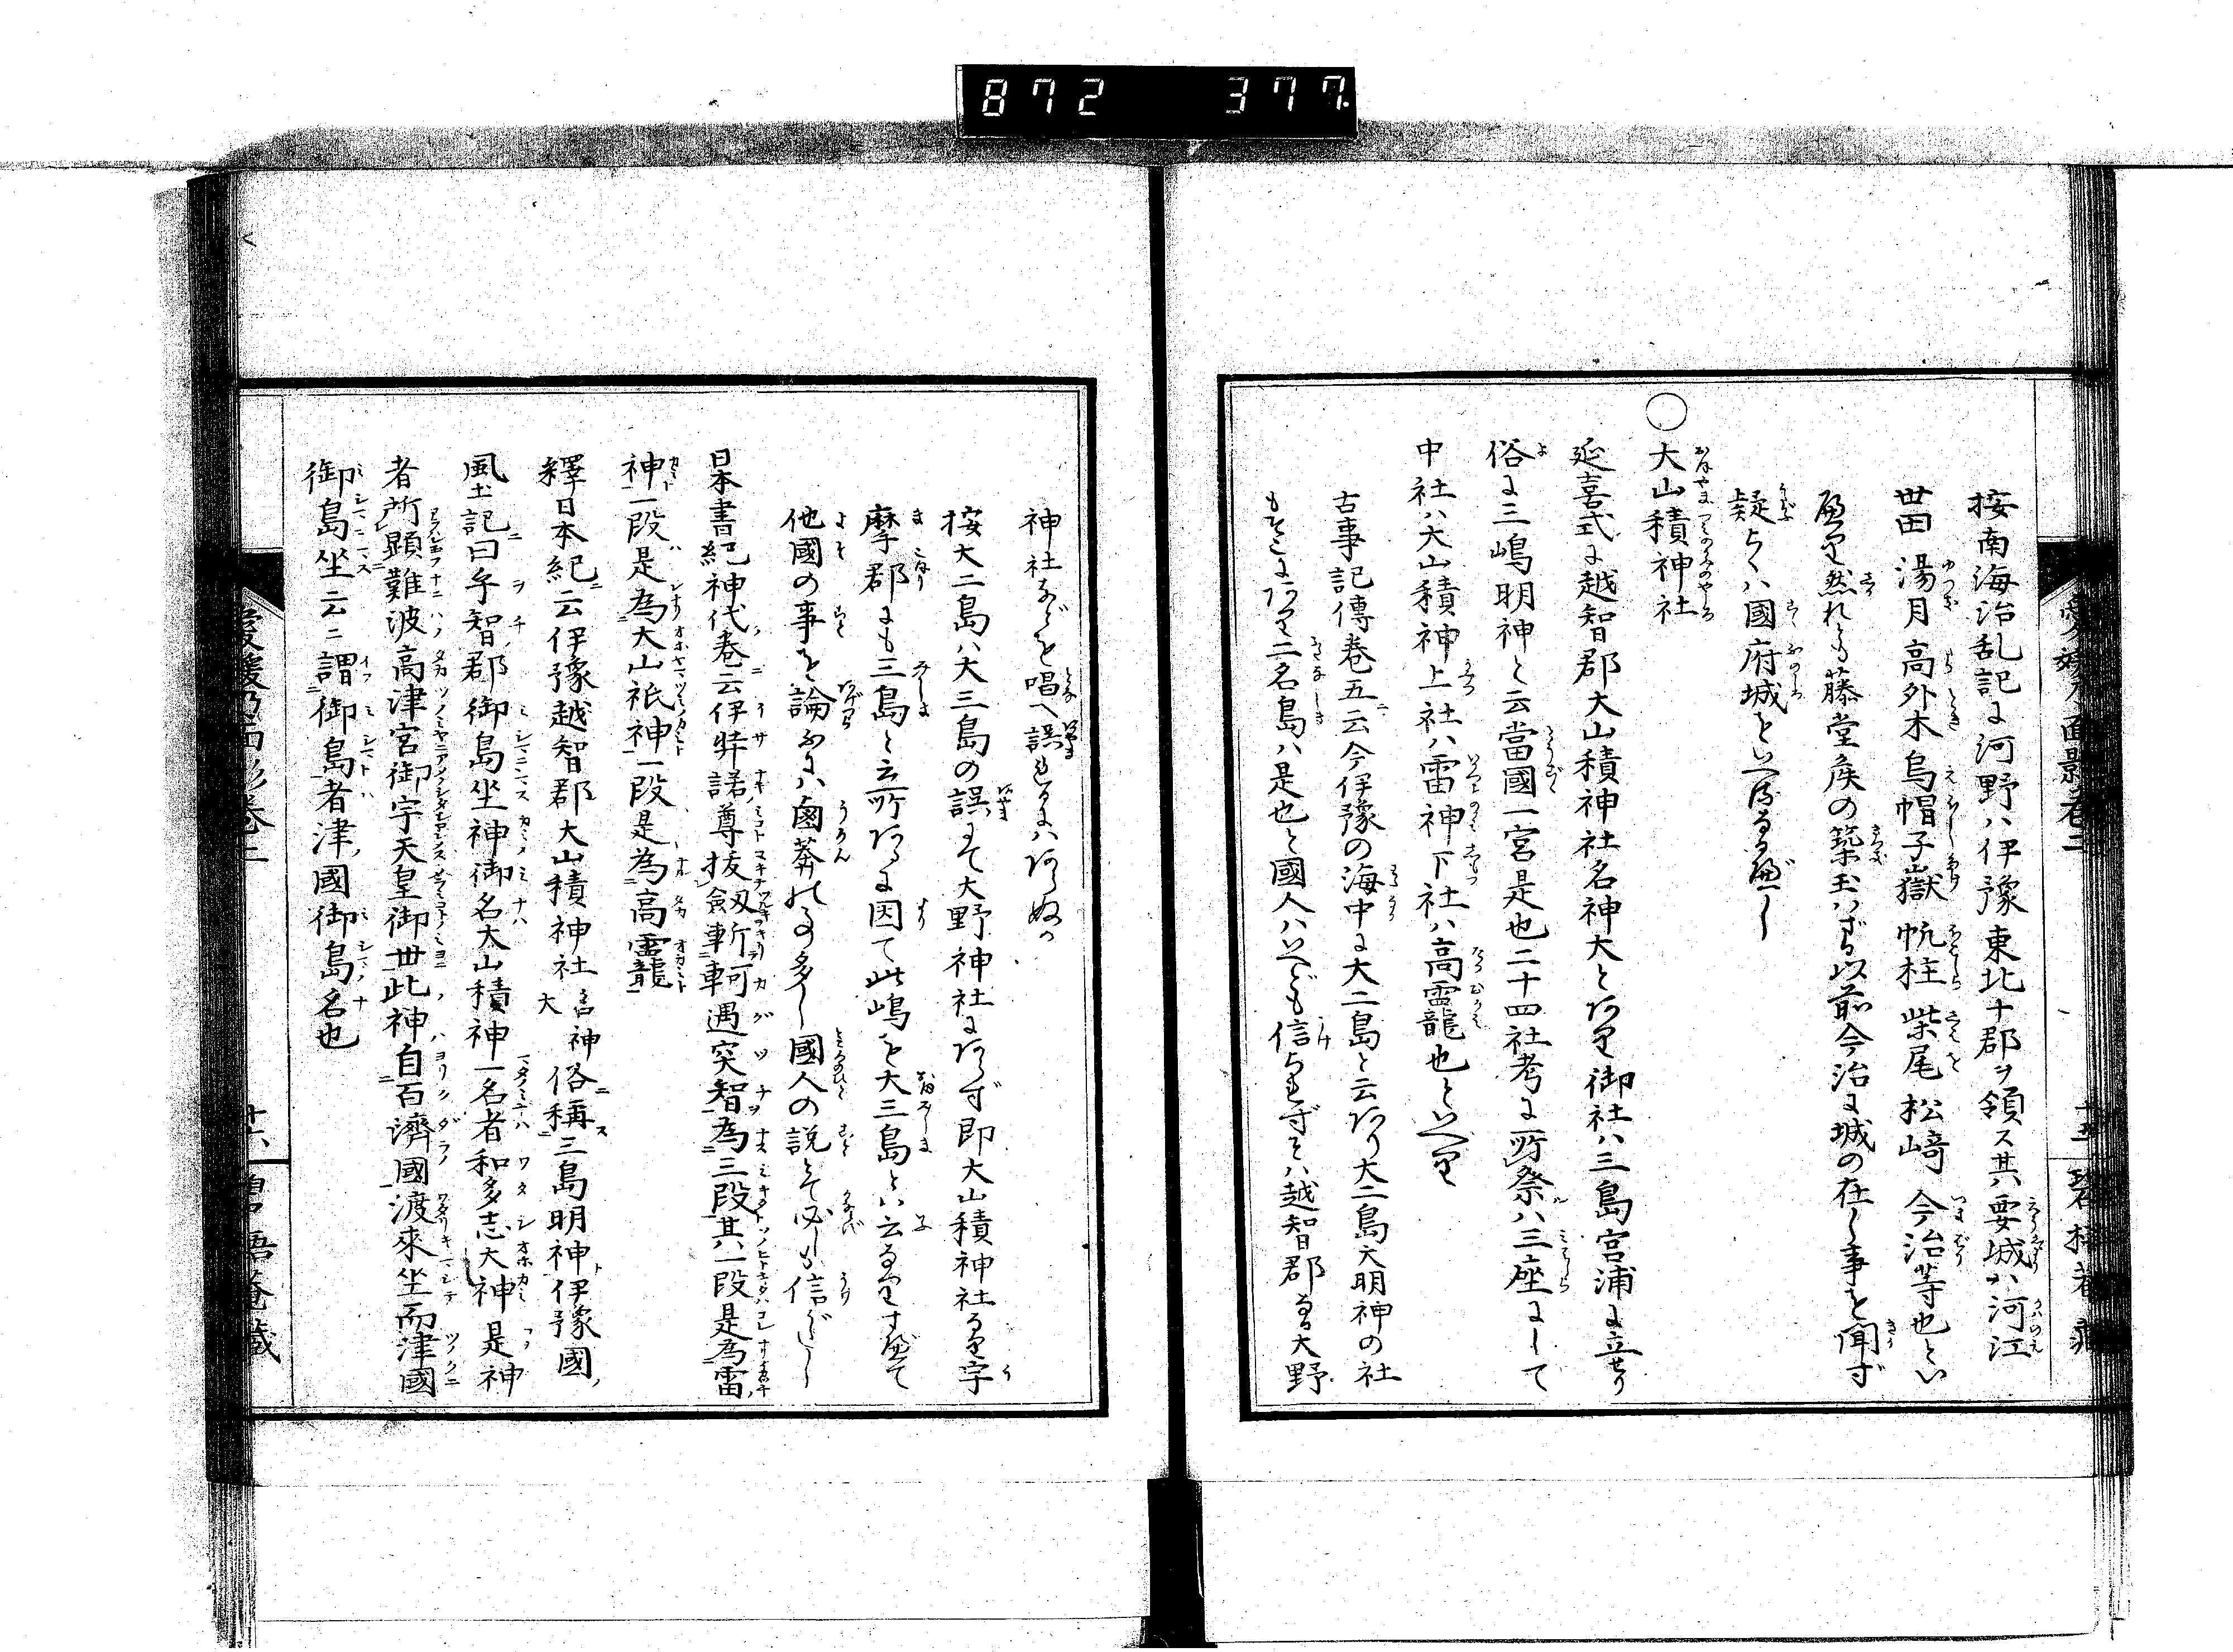 872 377
愛媛乃面影巻二
按南海治乱記に河野ハ伊豫東北十郡ヲ領ス其要城ハ河江
世田湯月高外木烏帽子嶽帆柱柴尾松﨑今治等也とい
然れども藤堂侯の築玉はざる以前今治に城の在し事を聞ず
疑らくハ國府城を
○大山積神社
延喜式に越智郡大山積神社名神大とあり御社ハ三島宮浦に立せり
俗に三嶋明神と云當國一宮是也二十四社考に所祭ハ三座にして
中社ハ大山積神上社ハ雷神下社ハ高龗也といへり
古事記傳巻五ニ云今伊豫の海中に大二島と云あり大二島大明神の社
もそこにあり二名島ハ是也と國人ハいへども信られずそハ越智郡なる大野
神社などを唱へ誤れるにハあらぬか
按大二島ハ大三島の誤にて大野神社にあらず即大山積神社なり宇
摩郡にも三島と云所あるに因て此嶋を大三島とハ云なりすべて
他國の事を論ふにハ鹵莽れる事多し國人の説とて必しも信がたし
日本書紀神代巻云伊弉諾尊拔劔斬軻遇突智為三段其一段是為雷
神一段是為大山祇神一段是為高龗
釋日本紀云伊豫越智郡大山積神社名神大俗稱三島明神伊豫國
風土記曰乎智郡御島坐神御名大山積神一名者和多志大神是神
者所顕難波高津宮御宇天皇御世此神自百濟國渡來坐而津國
御島坐云ニ謂御島者津國御島名也